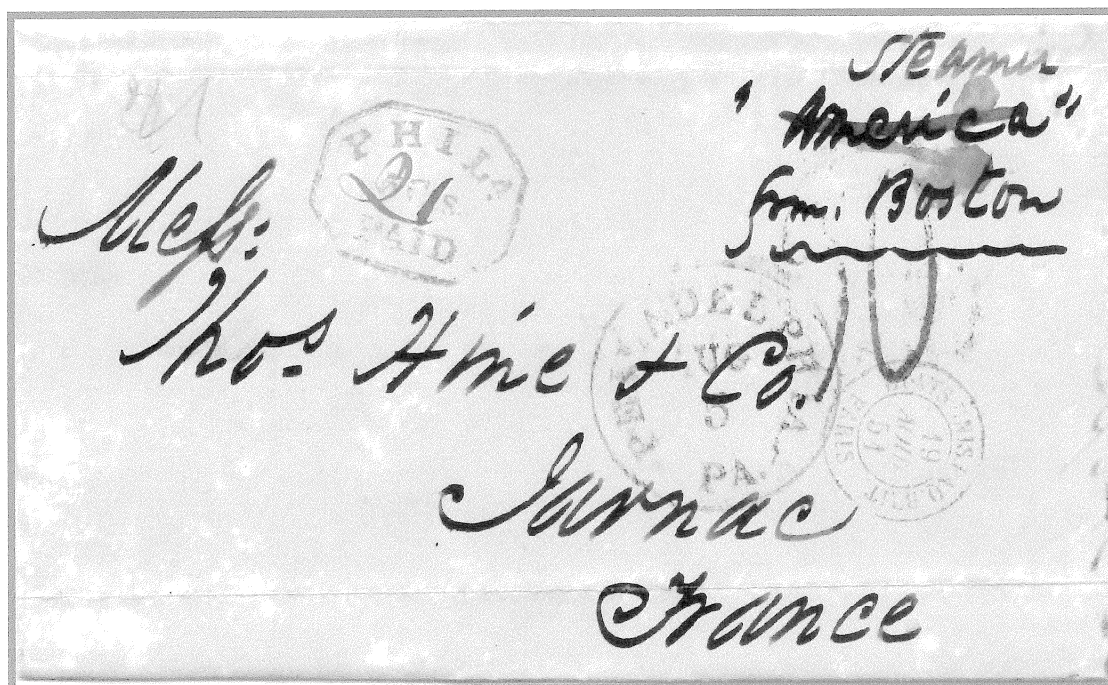 Steamer
"America"
from. Boston
PHILA
21
PAID
Mess:
Thos Hine & Co.
Jarnac
France
PHILADELPHIA
AUG
5
PA.
10
19
AOUT
51
PARIS